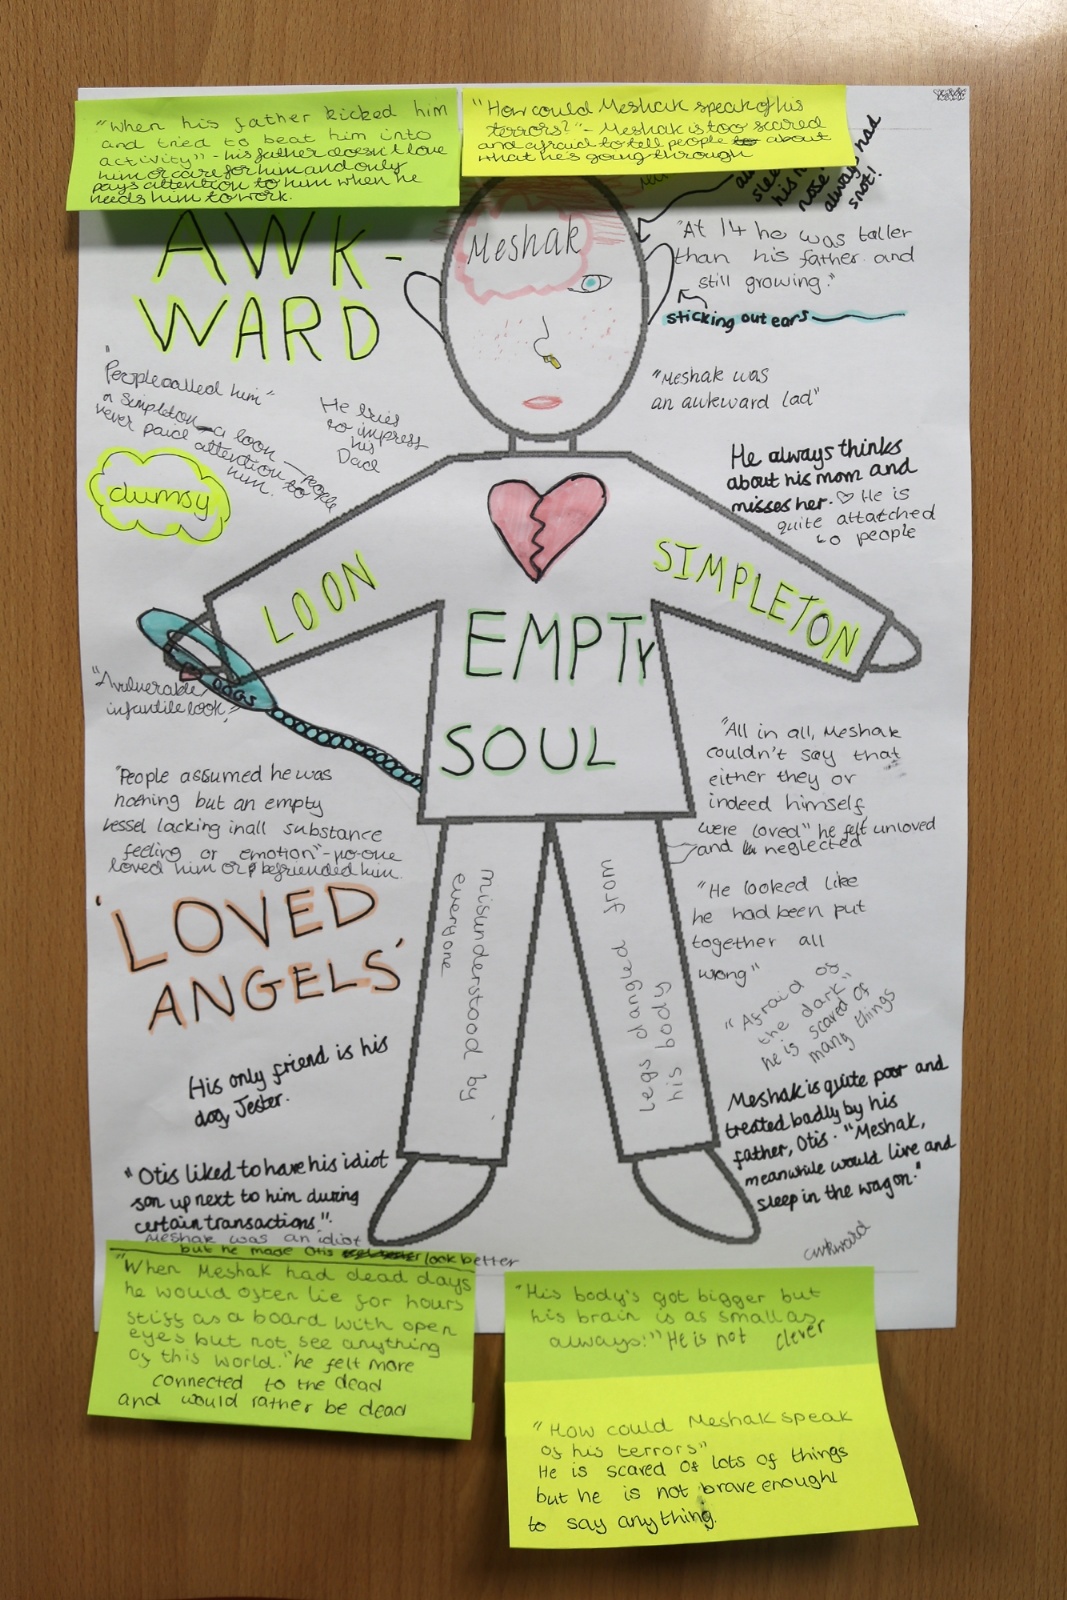 "When his father kicked him
and tried to beat him into
activity" - his father doesn't love
him or care for him and only
pays attention to him when he
needs him to work.
"How could Meshak speak of his
terrors?" - Meshak is too scared
and afraid to tell people about
what he's going through
had
always
snot!
his
nose
AWK-
WARD
Meshak
"At 14 he was taller
than his father and
still growing."
sticking out ears
"Meshak was
an awkward lad"
"People called him"
a simpleton - a loon - people
never paid attention to
him.
He tries
to impress
his
Dad
clumsy
He always thinks
about his mom and
misses her. He is
quite attatched
to people
LOON
SIMPLETON
EMPTY
SOUL
DOGS
"A vulnerable
infantile look"
"People assumed he was
nothing but an empty
vessel lacking in all substance
feeling or emotion" - no-one
loved him or befriended him.
"All in all, Meshak
couldn't say that
either they or
indeed himself
were loved" he felt unloved
and neglected
'LOVED
ANGELS'
misunderstood by
everyone
legs dangled from
his body
"He looked like
he had been put
together all
wrong"
"Afraid of
the dark"
he is scared of
many things
His only friend is his
dog, Jester.
Meshak is quite poor and
treated badly by his
father, Otis. "Meshak,
meanwhile would live and
sleep in the wagon."
"Otis liked to have his idiot
son up next to him during
certain transactions."
Meshak was an idiot
but he made Otis look better
awkward
"When Meshak had dead days
he would often lie for hours
stiff as a board with open
eyes but not see anything
of this world." he felt more
connected to the dead
and would rather be dead
"His body's got bigger but
his brain is as small as
always!" He is not clever
"How could Meshak speak
of his terrors"
He is scared of lots of things
but he is not brave enough
to say anything.